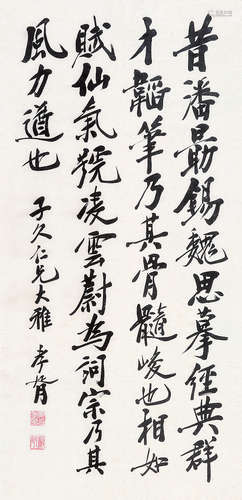 昔潘勗錫魏思摹經典群
才韜筆乃其骨髓峻也相如
賦仙氣號凌雲蔚為詞宗乃其
風力遒也 子久仁兄大雅 孝胥